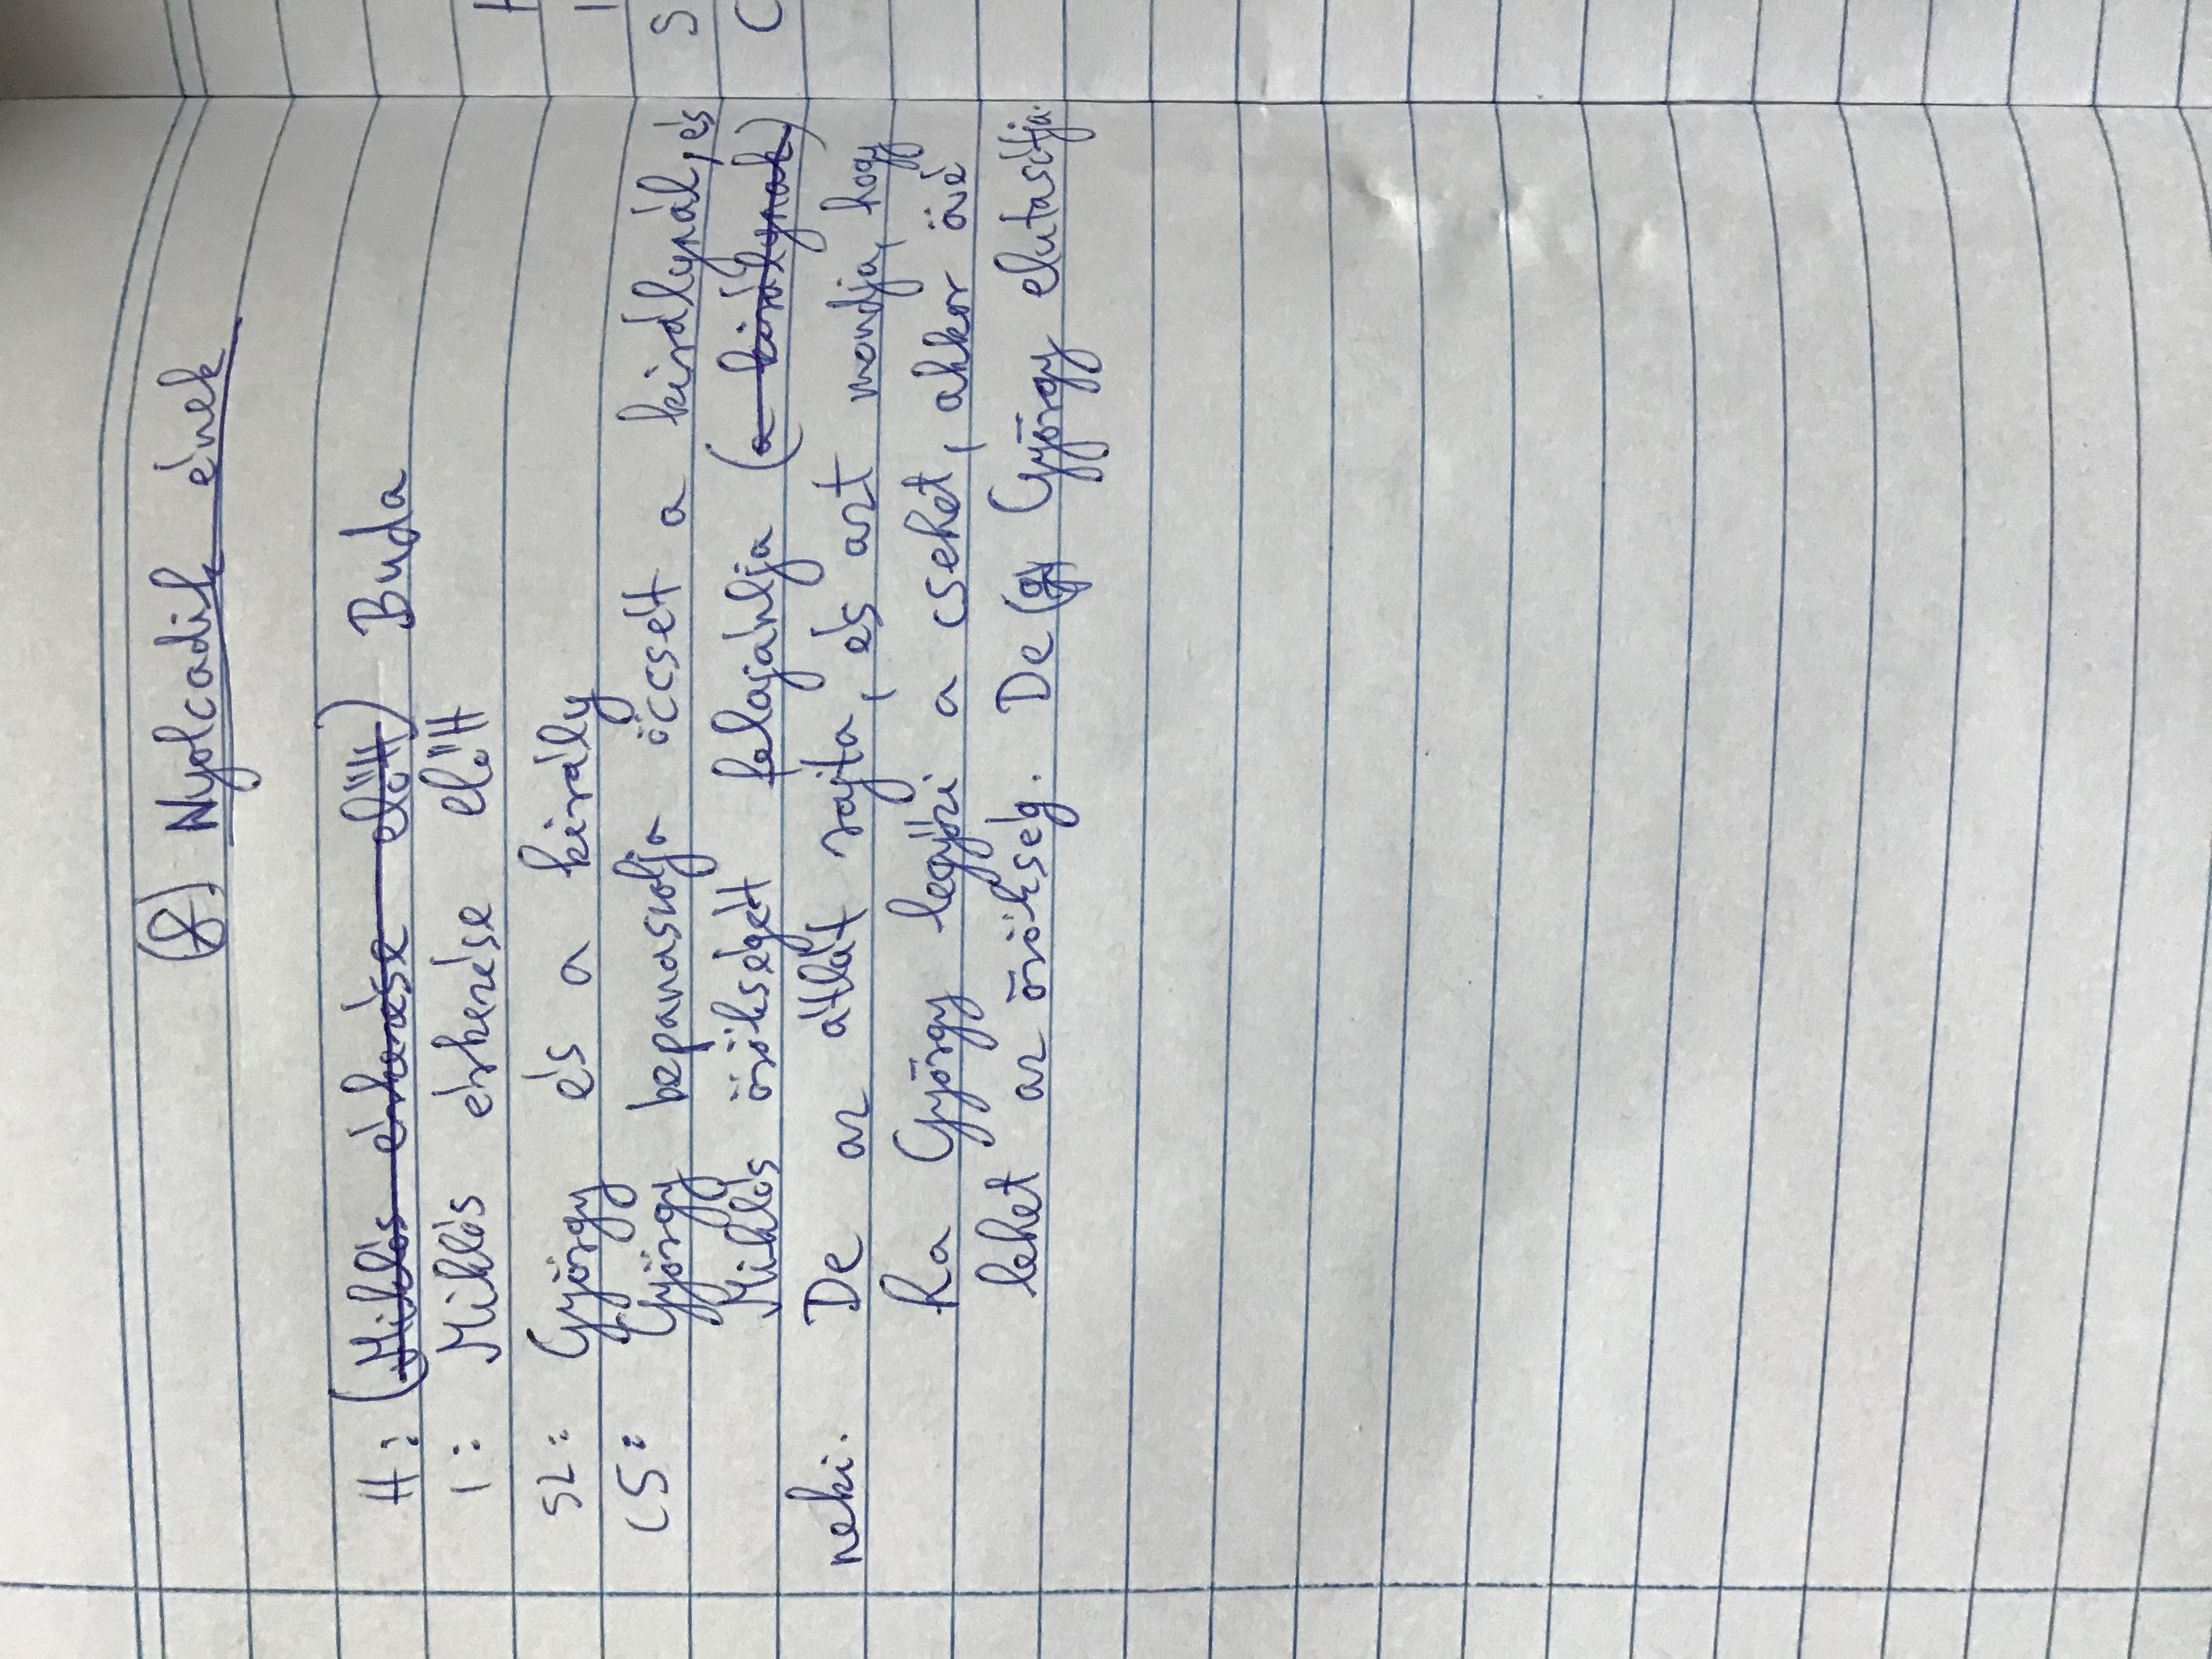 (8). Nyolcadik ének
H: (Miklós érkezése előtt) Buda
I: Miklós érkezése előtt
SZ: György és a király
CS: György bepanaszolja öccsét a királynál, és
Miklós örökségét felajánlja (a királynak)
neki. De az átlát rajta, és azt mondja, hogy
Ha György legyőzi a csehet, akkor övé
lehet az örökség. De György elutasítja.